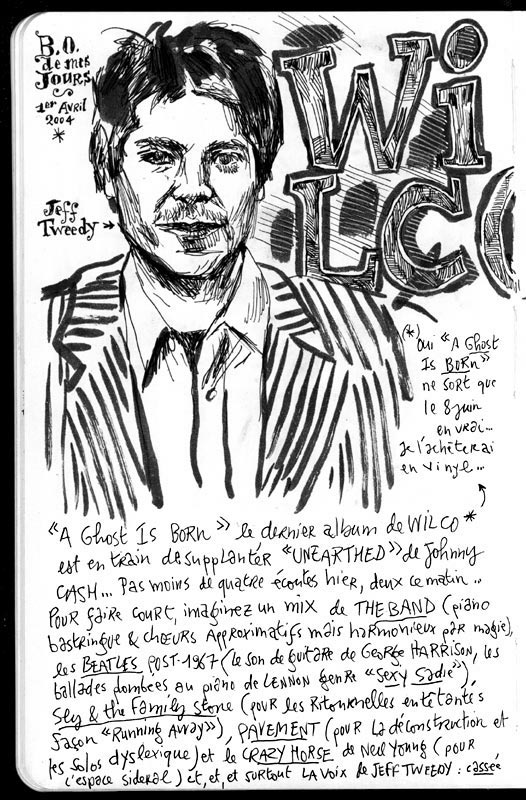 B.O.
de mes
JOURS
1er Avril
2004
*
WI
LCO
Jeff
Tweedy
(*) Oui "A Ghost
Is BORN"
ne sort que
le 8 juin
en vrai...
Je l'achèterai
en vinyl...
"A Ghost Is BORN" le dernier album de WILCO *
est en train de supplanter "UNEARTHED" de Johnny
CASH... Pas moins de quatre écoutes hier, deux ce matin..
Pour faire court, imaginez un mix de THE BAND (piano
bastringue & chœurs Approximatifs mais harmonieux par magie),
les BEATLES post-1967 (le son de guitare de George HARRISON, les
ballades plombées au piano de LENNON genre "Sexy Sadie"),
Sly & the Family Stone (pour les Ritournelles entêtantes
façon "Running Away"), PAVEMENT (pour la déconstruction et
les solos dyslexique) et le CRAZY HORSE de Neil Young (pour
l'espace sidéral) et, et, et surtout LA voix de JEFF TWEEDY : cassée